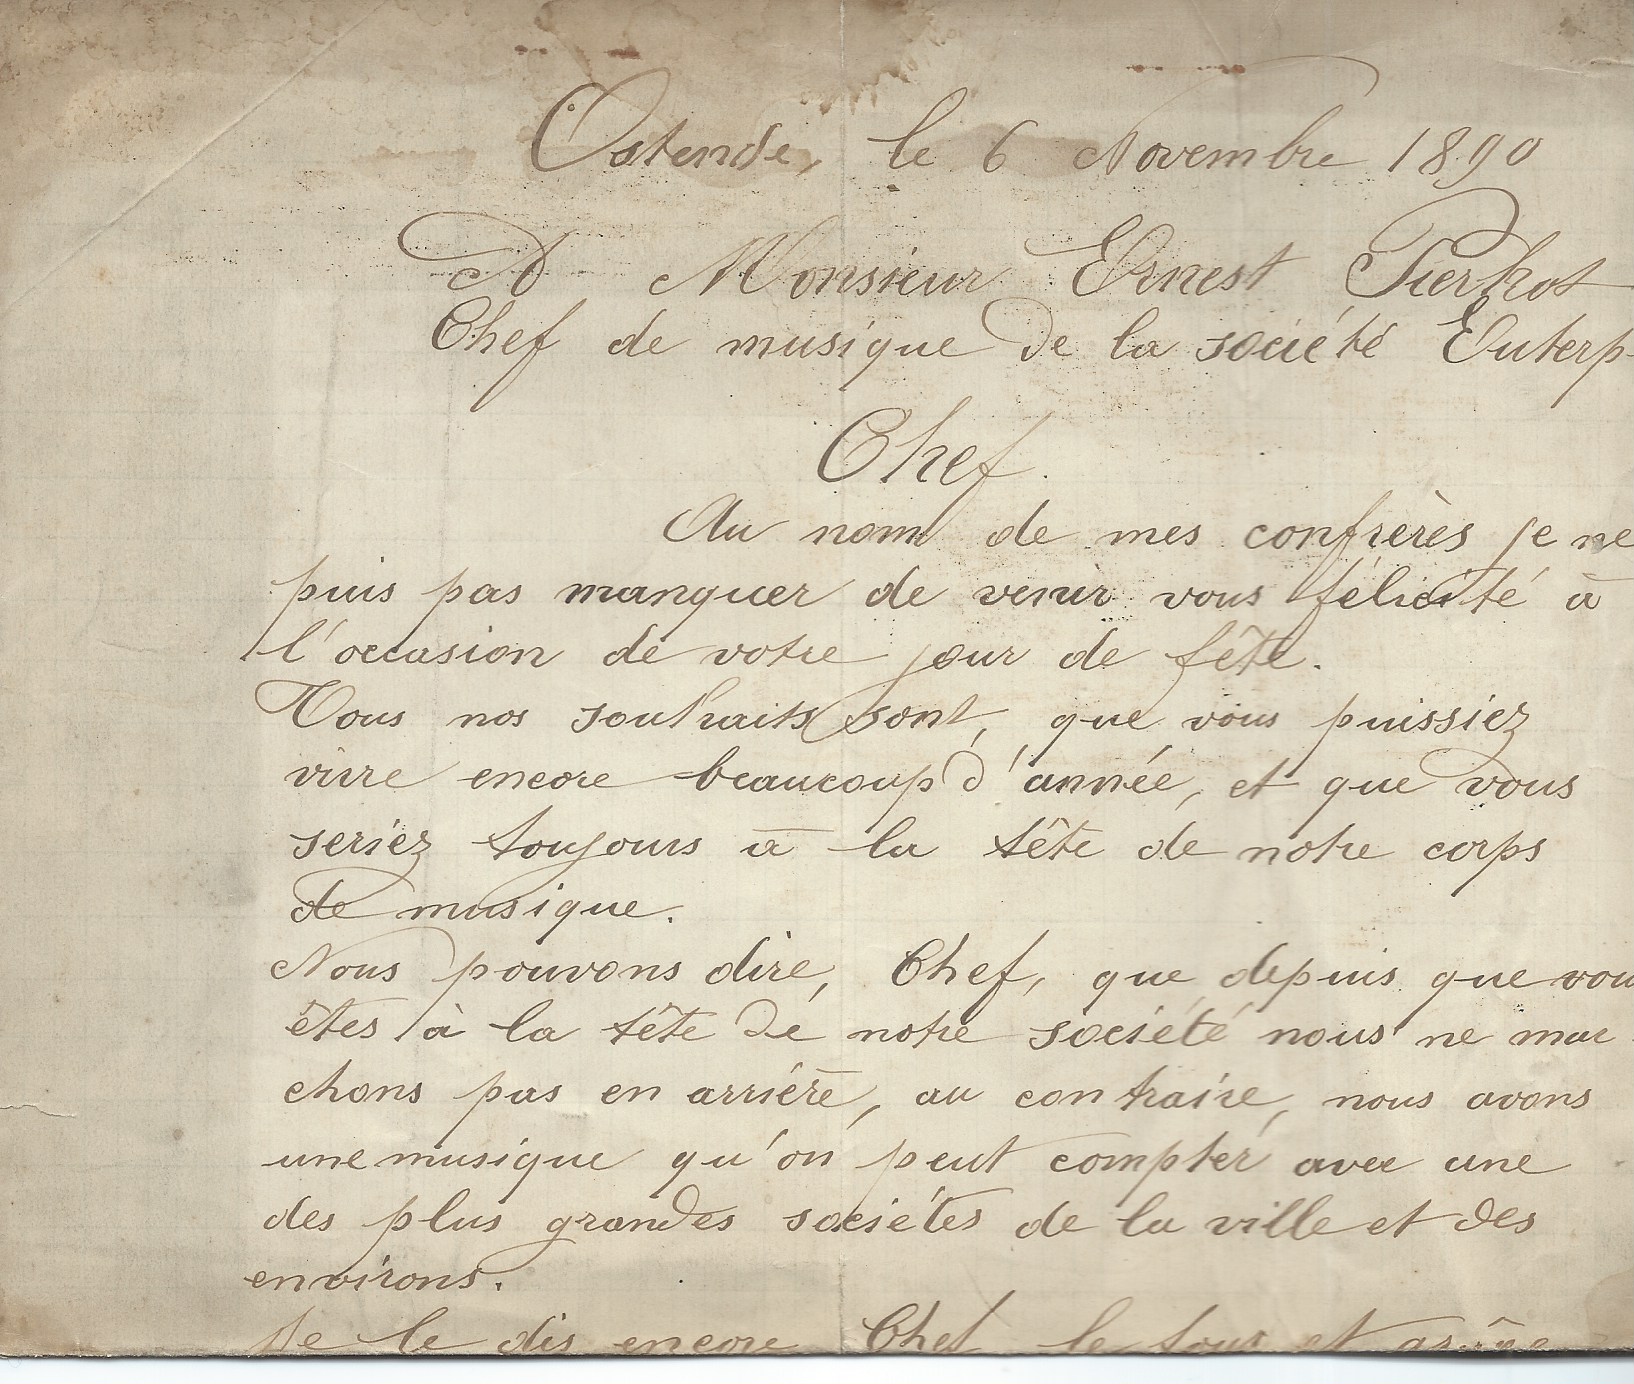 Ostende, le 6 Novembre 1890
A Monsieur Ernest Pierkot
Chef de musique de la société Euterp
Chef.
Au nom de mes confrères je ne
puis pas manquer de venir vous félicité à
l'occasion de votre jour de fête.
Tous nos souhaits sont, que vous puissiez
vivre encore beaucoup d'année, et que vous
seriez toujours à la tête de notre corps
de musique.
Nous pouvons dire, Chef, que depuis que vou
êtes à la tête de notre société nous ne mar
chons pas en arrière, au contraire, nous avons
une musique qu'on peut compter avec une
des plus grandes sociétés de la ville et des
environs.
Je le dis encore Chef le jour et